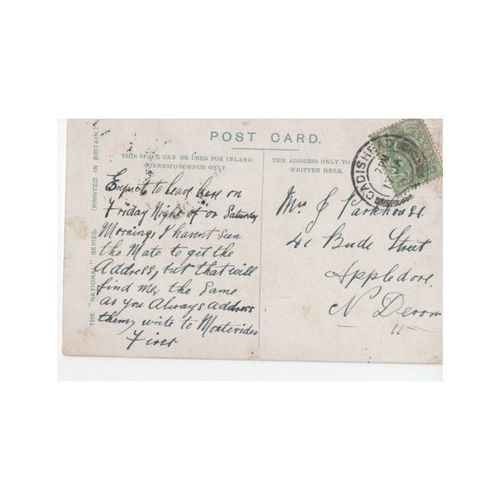 POST CARD.
THIS SPACE CAN BE USED FOR INLAND
CORRESPONDENCE ONLY.
THE ADDRESS ONLY TO
WRITTEN HERE.
THE "NATIONAL" SERIES.
(PRINTED IN BRITAIN.)
CADISHEAD
Expect to leave here on
Friday Night or Saturday
Morning, I havent seen
the Mate to get the
Address, but that will
find me the Same
as you Always Address
them, write to Montevideo
First
Mrs J Parkhouse
41 Bude Street
Appledore
N Devon